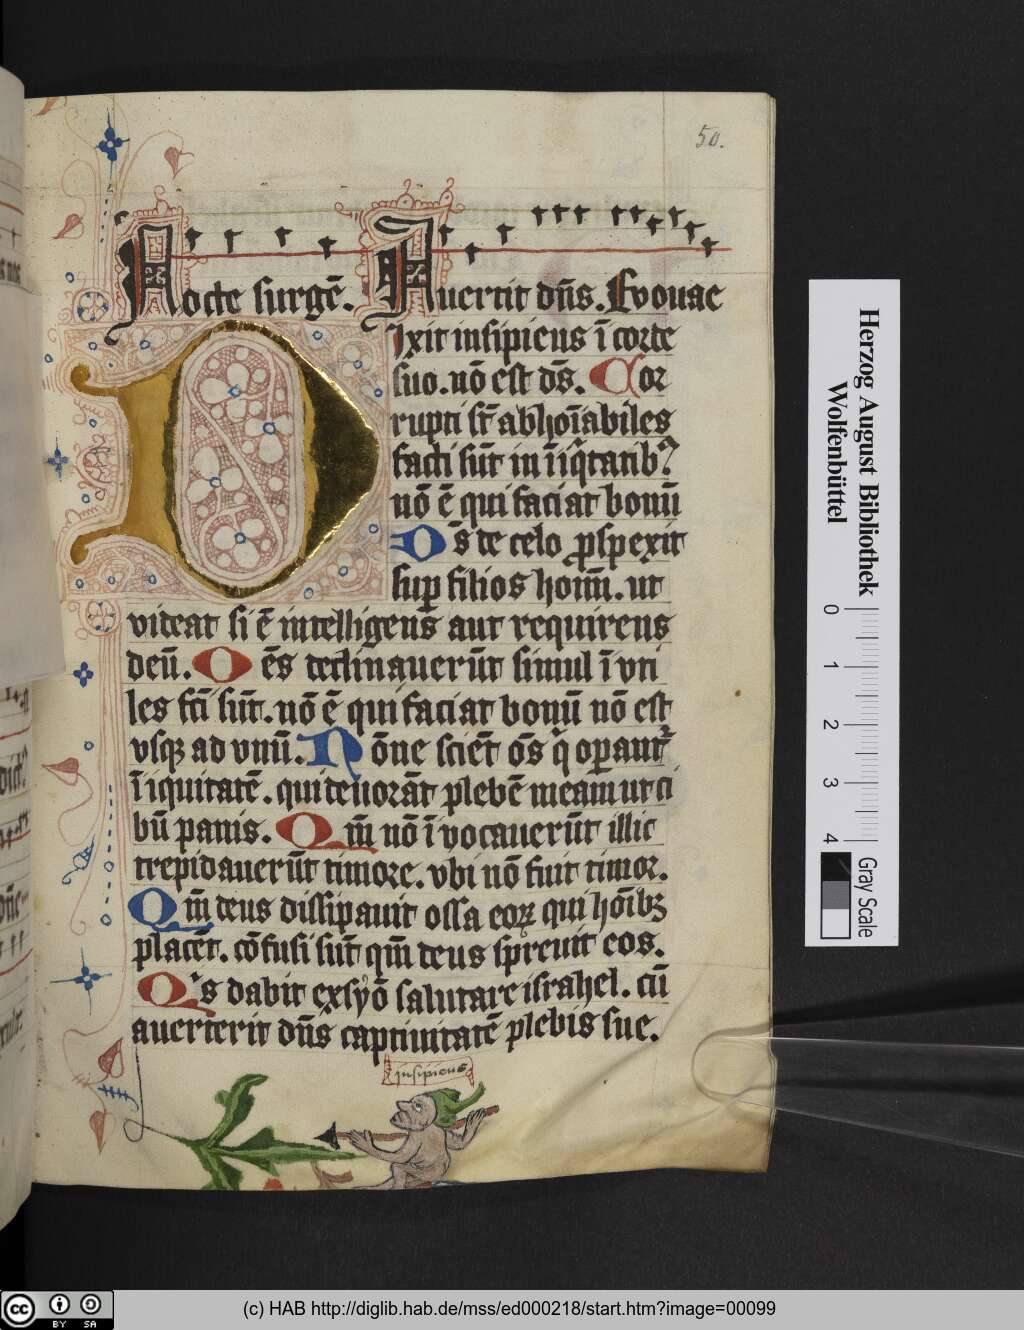 50.
Nocte surgē. Auertit dn̄s. Euouae
Dixit insipiens ī corde
suo. nō est ds̄. Cor
rupti st̄ abhoīabiles
facti sūt in īiq̄tatibꝰ
nō ē qui faciat bonū
Ds̄ de celo ꝓspexit
suꝑ filios homī. ut
videat si ē intelligens aut requirens
deū. Oēs declinauerūt simul ī vti
les fc̄i sūt. nō ē qui faciat bonū nō est
vsqꝫ ad vnū. Nōne sciēt os̄ q̄ oꝑant̄
īiquitatē. qui deuorāt plebē meam ut ci
bū panis. Qm̄ nō īvocauerūt illic
trepidauerūt timore. vbi nō fuit timor.
Qm̄ deus dissipauit ossa eoꝝ qui hoībꝫ
placēt. cōfusi sūt qm̄ deus spreuit eos.
Qͥs dabit ex syō salutare israhel. cū
auerterit dn̄s captiuitatē plebis sue.
insipiens
Herzog August Bibliothek
Wolfenbüttel
0 1 2 3 4
Gray Scale
cc BY SA
(c) HAB http://diglib.hab.de/mss/ed000218/start.htm?image=00099